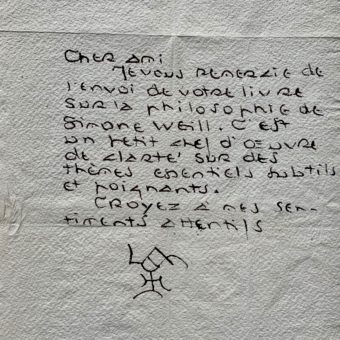 Cher ami
Je vous remercie de
l'envoi de votre livre
sur la philosophie de
Simone Weill. C'est
un petit chef d'œuvre
de clarté sur des
thèmes essentiels subtils
et poignants.
Croyez à mes sen-
timents attentifs